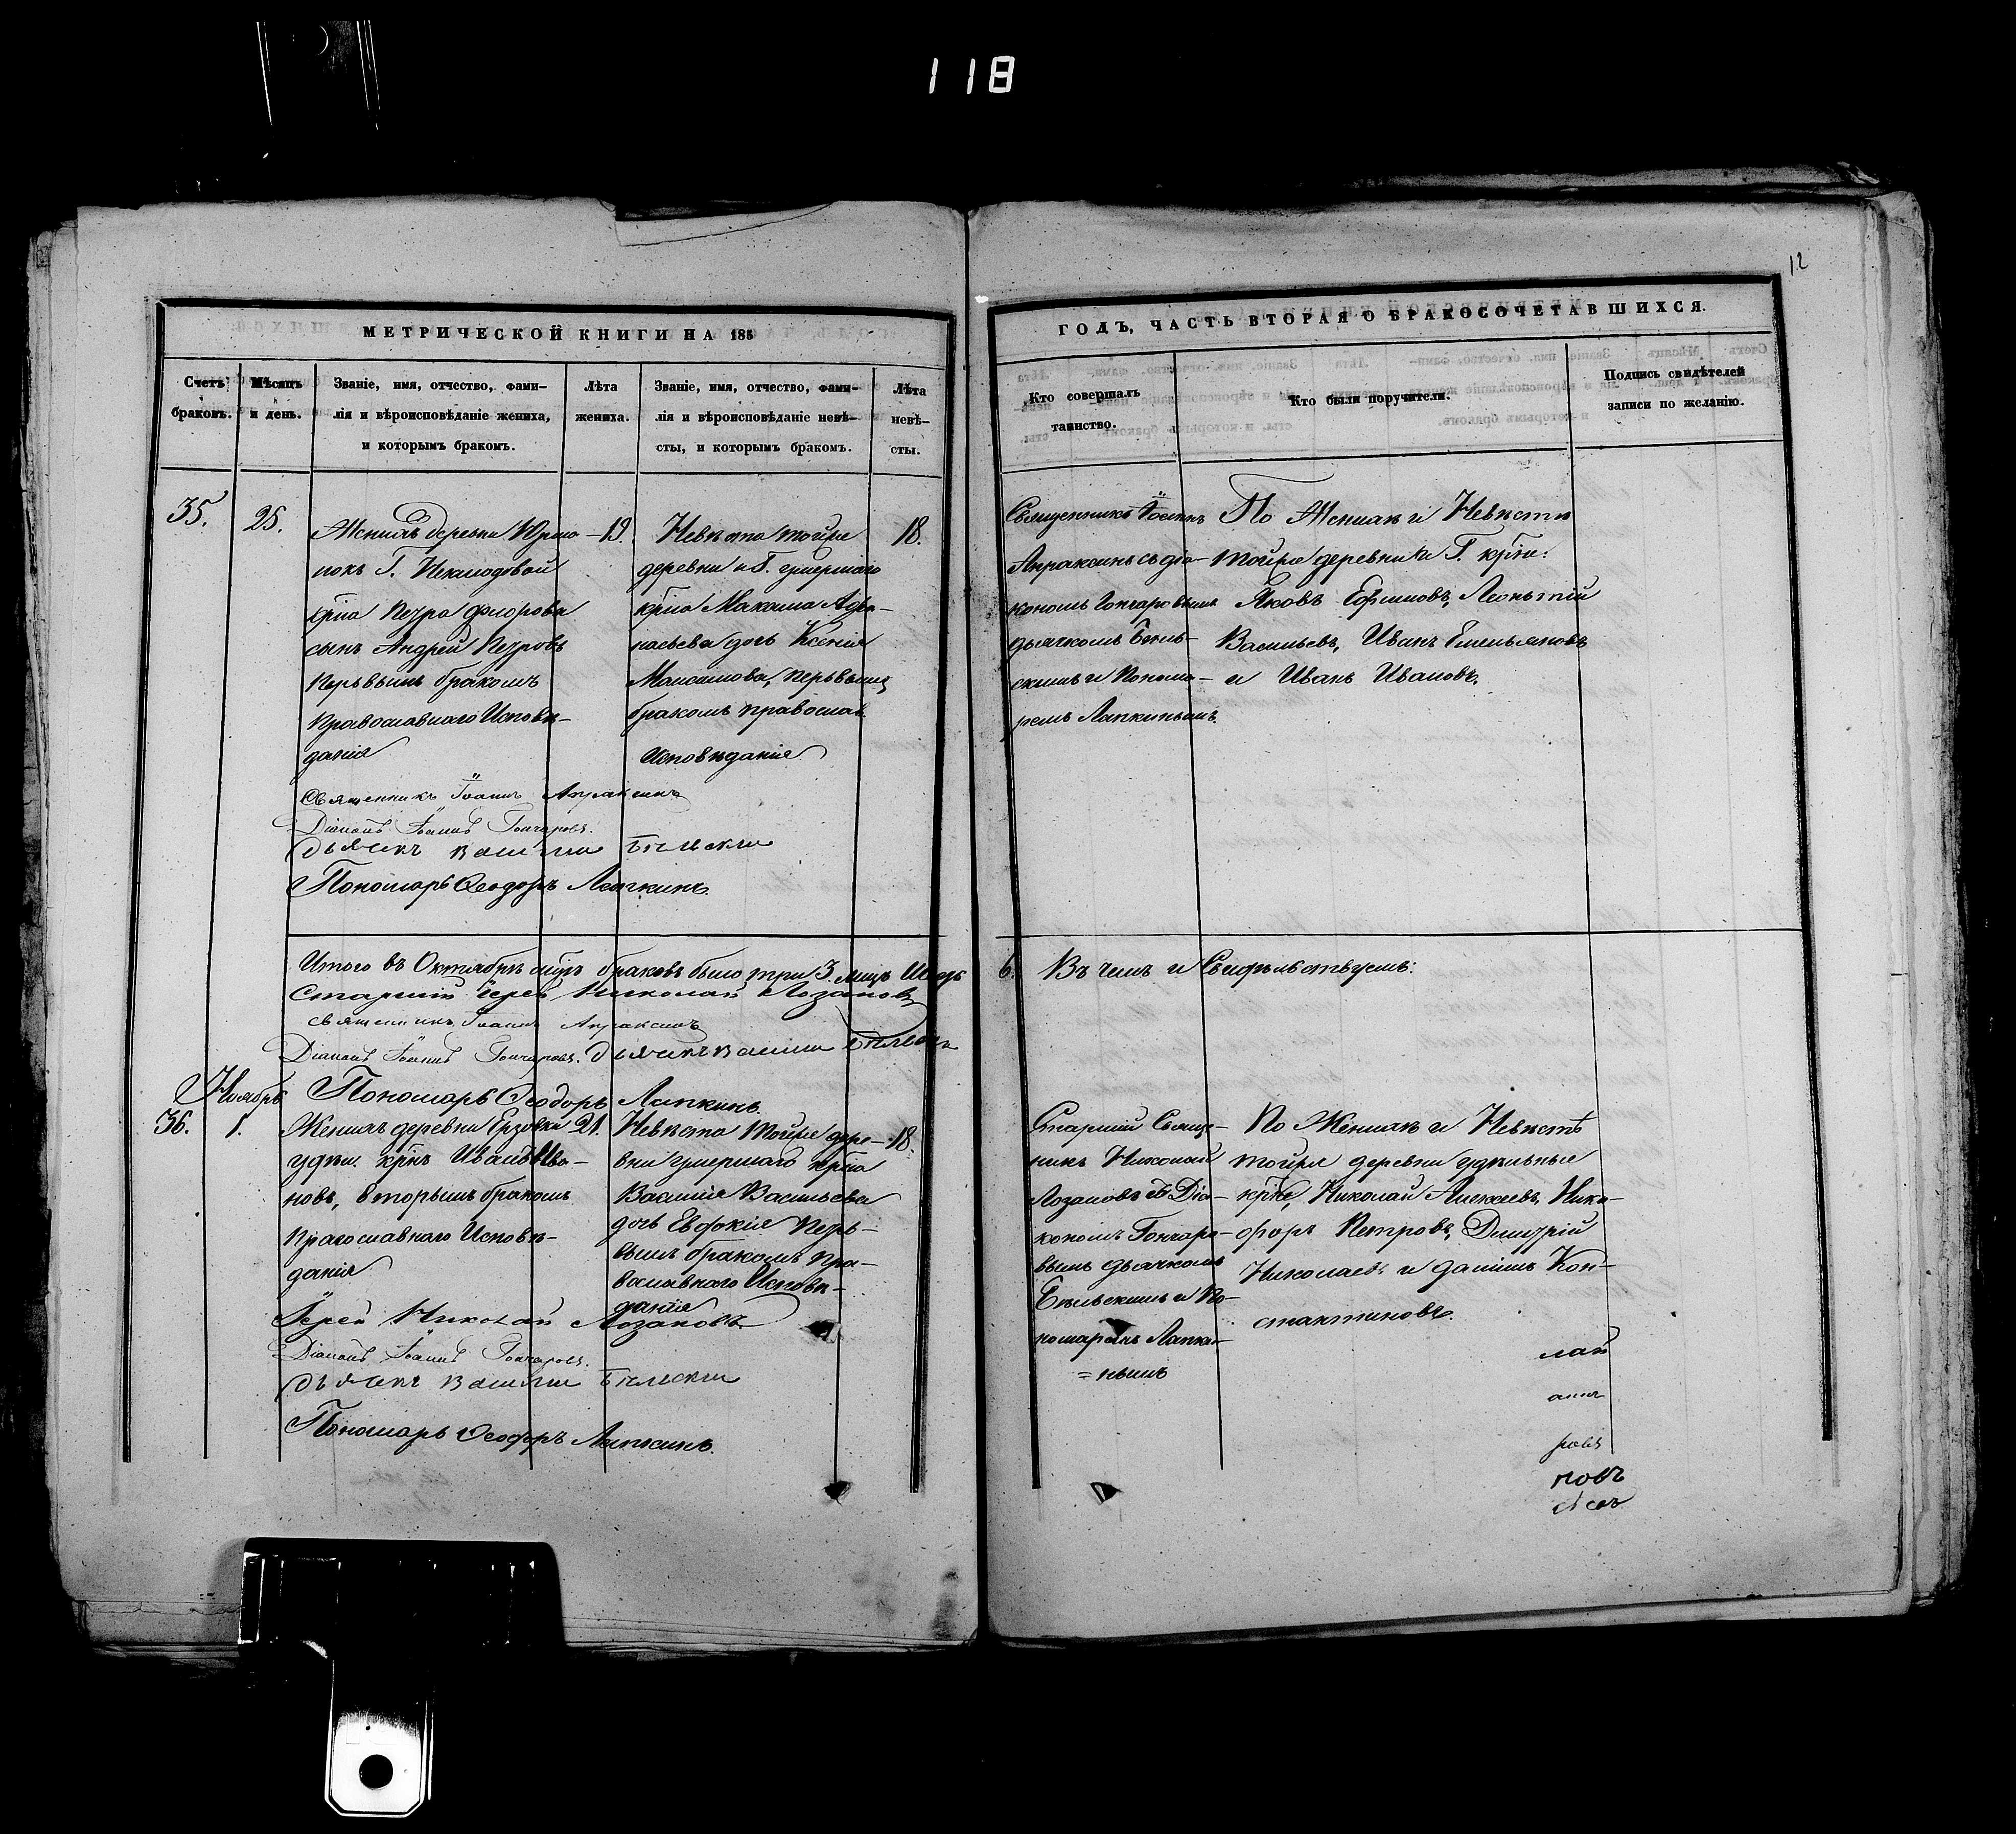 118
12
МЕТРИЧЕСКОЙ КНИГИ НА 185
ГОДЪ, ЧАСТЬ ВТОРАЯ О БРАКОСОЧЕТАВШИХСЯ.
Счетъ браковъ.
Мѣсяцъ и день.
Званіе, имя, отчество, фами-
лія и вѣроисповѣданіе жениха,
и которымъ бракомъ.
Лѣта
жениха.
Званіе, имя, отчество, фами-
лія и вѣроисповѣданіе невѣ-
сты, и которымъ бракомъ.
Лѣта
невѣ-
сты.
Кто совершалъ
таинство.
Кто были поручители.
Подпись свидѣтелей
записи по желанію.
35.
25.
Женихъ деревни
покъ Г.
крна Петра Фіорова
сынъ Андрей Петровъ
перьвымъ бракомъ
православнаго Исповѣ-
данія
19.
Невѣста тойже
деревни и Г. умершаго
крна Максима Афа-
насьева дочь Ксенія
Максимова, перьвымъ
бракомъ православ.
Исповѣданія
18.
Священникъ Іоаннъ
Апраксинъ съ діа-
кономъ Гончаровымъ
дьячкомъ Бѣль-
скимъ и Понома-
ремъ Лапкинымъ.
По Женихѣ и Невѣстѣ
тойже деревни и Г. крне:
Яковъ Ефимовъ, Леонътій
Васильевъ, Иванъ Емельяновъ
и Иванъ Ивановъ.
Священникъ Іоаннъ Апраксинъ
Діаконъ Іоаннъ Гончаровъ.
Дьячекъ Василій Бѣльскій
Пономарь Ѳеодоръ Лапкинъ.
Итого въ Октябрѣ мцѣ браковъ было три 3. лицъ 6. Въ чемъ и Свидѣтельствуемъ:
Старшій Іерей Николай Лозановъ
Священникъ Іоаннъ Апраксинъ
Діаконъ Іоаннъ Гончаровъ. Дьячекъ Василій Бѣльскій
Пономарь Ѳеодоръ Лапкинъ.
Ноябрь
36.
1.
Женихъ деревни Ерзовки
удѣл. крнъ Иванъ Ива-
новъ, вторымъ бракомъ
православнаго Исповѣ-
данія
21.
Невѣста тойже дере-
вни умершаго крна
Василія Васильева
дочь Евдокія перь-
вымъ бракомъ пра-
вославнаго Исповѣ-
данія
18.
Старшій Свяще-
никъ Николай
Лозановъ съ Діа-
кономъ Гончаро-
вымъ дьячкомъ
Бѣльскимъ и По-
номаремъ Лапки-
=нымъ
По Женихѣ и Невѣстѣ
тойже деревни удѣльные
крне, Николай Алексѣевъ, Ники-
форъ Петровъ, Дмитрій
Николаевъ и Даніилъ Кон-
стантиновъ.
Іерей Николай Лозановъ
Діаконъ Іоаннъ Гончаровъ.
Дьячекъ Василій Бѣльскій
Пономарь Ѳеодоръ Лапкинъ.
лай
ровъ
новъ